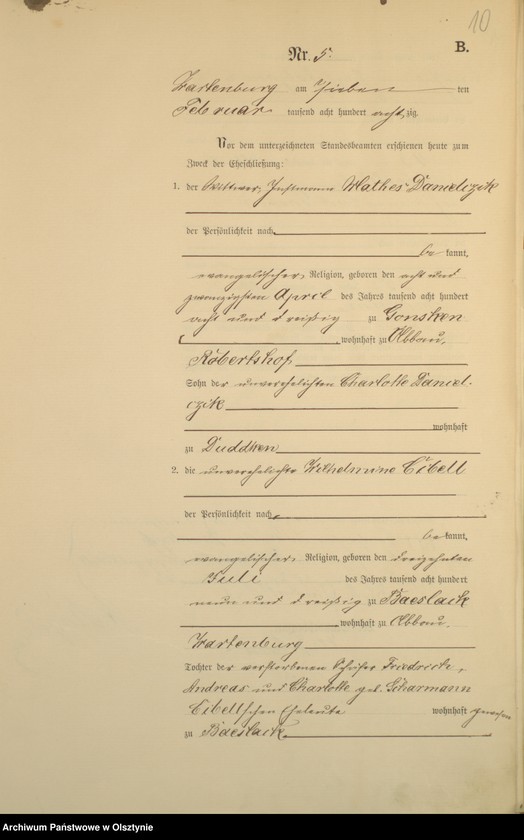 10
B.
Nr. 5.
Wartenburg am sieben ten
Februar tausend acht hundert achtzig.
Vor dem unterzeichneten Standesbeamten erschienen heute zum
Zweck der Eheschließung:
1. der Wittwer, Instmann Mathes Danielczik
der Persönlichkeit nach
be kannt,
evangelischer Religion, geboren den acht und
zwanzigsten April des Jahres tausend acht hundert
acht und dreißig zu Gonsken
, wohnhaft zu Abbau,
Robertshof
Sohn der unverehelichten Charlotte Daniel-
czik
wohnhaft
zu Duddken
2. die unverehelichte Wilhelmine Cibell
der Persönlichkeit nach
be kannt,
evangelischer Religion, geboren den dreizehnten
Juli des Jahres tausend acht hundert
neun und dreißig zu Baeslack
, wohnhaft zu Abbau,
Wartenburg
Tochter der verstorbenen Schäfer Friedrich,
Andreas und Charlotte geb. Scharmann
Cibellschen Eheleute wohnhaft gewesen
zu Baeslack
Archiwum Państwowe w Olsztynie